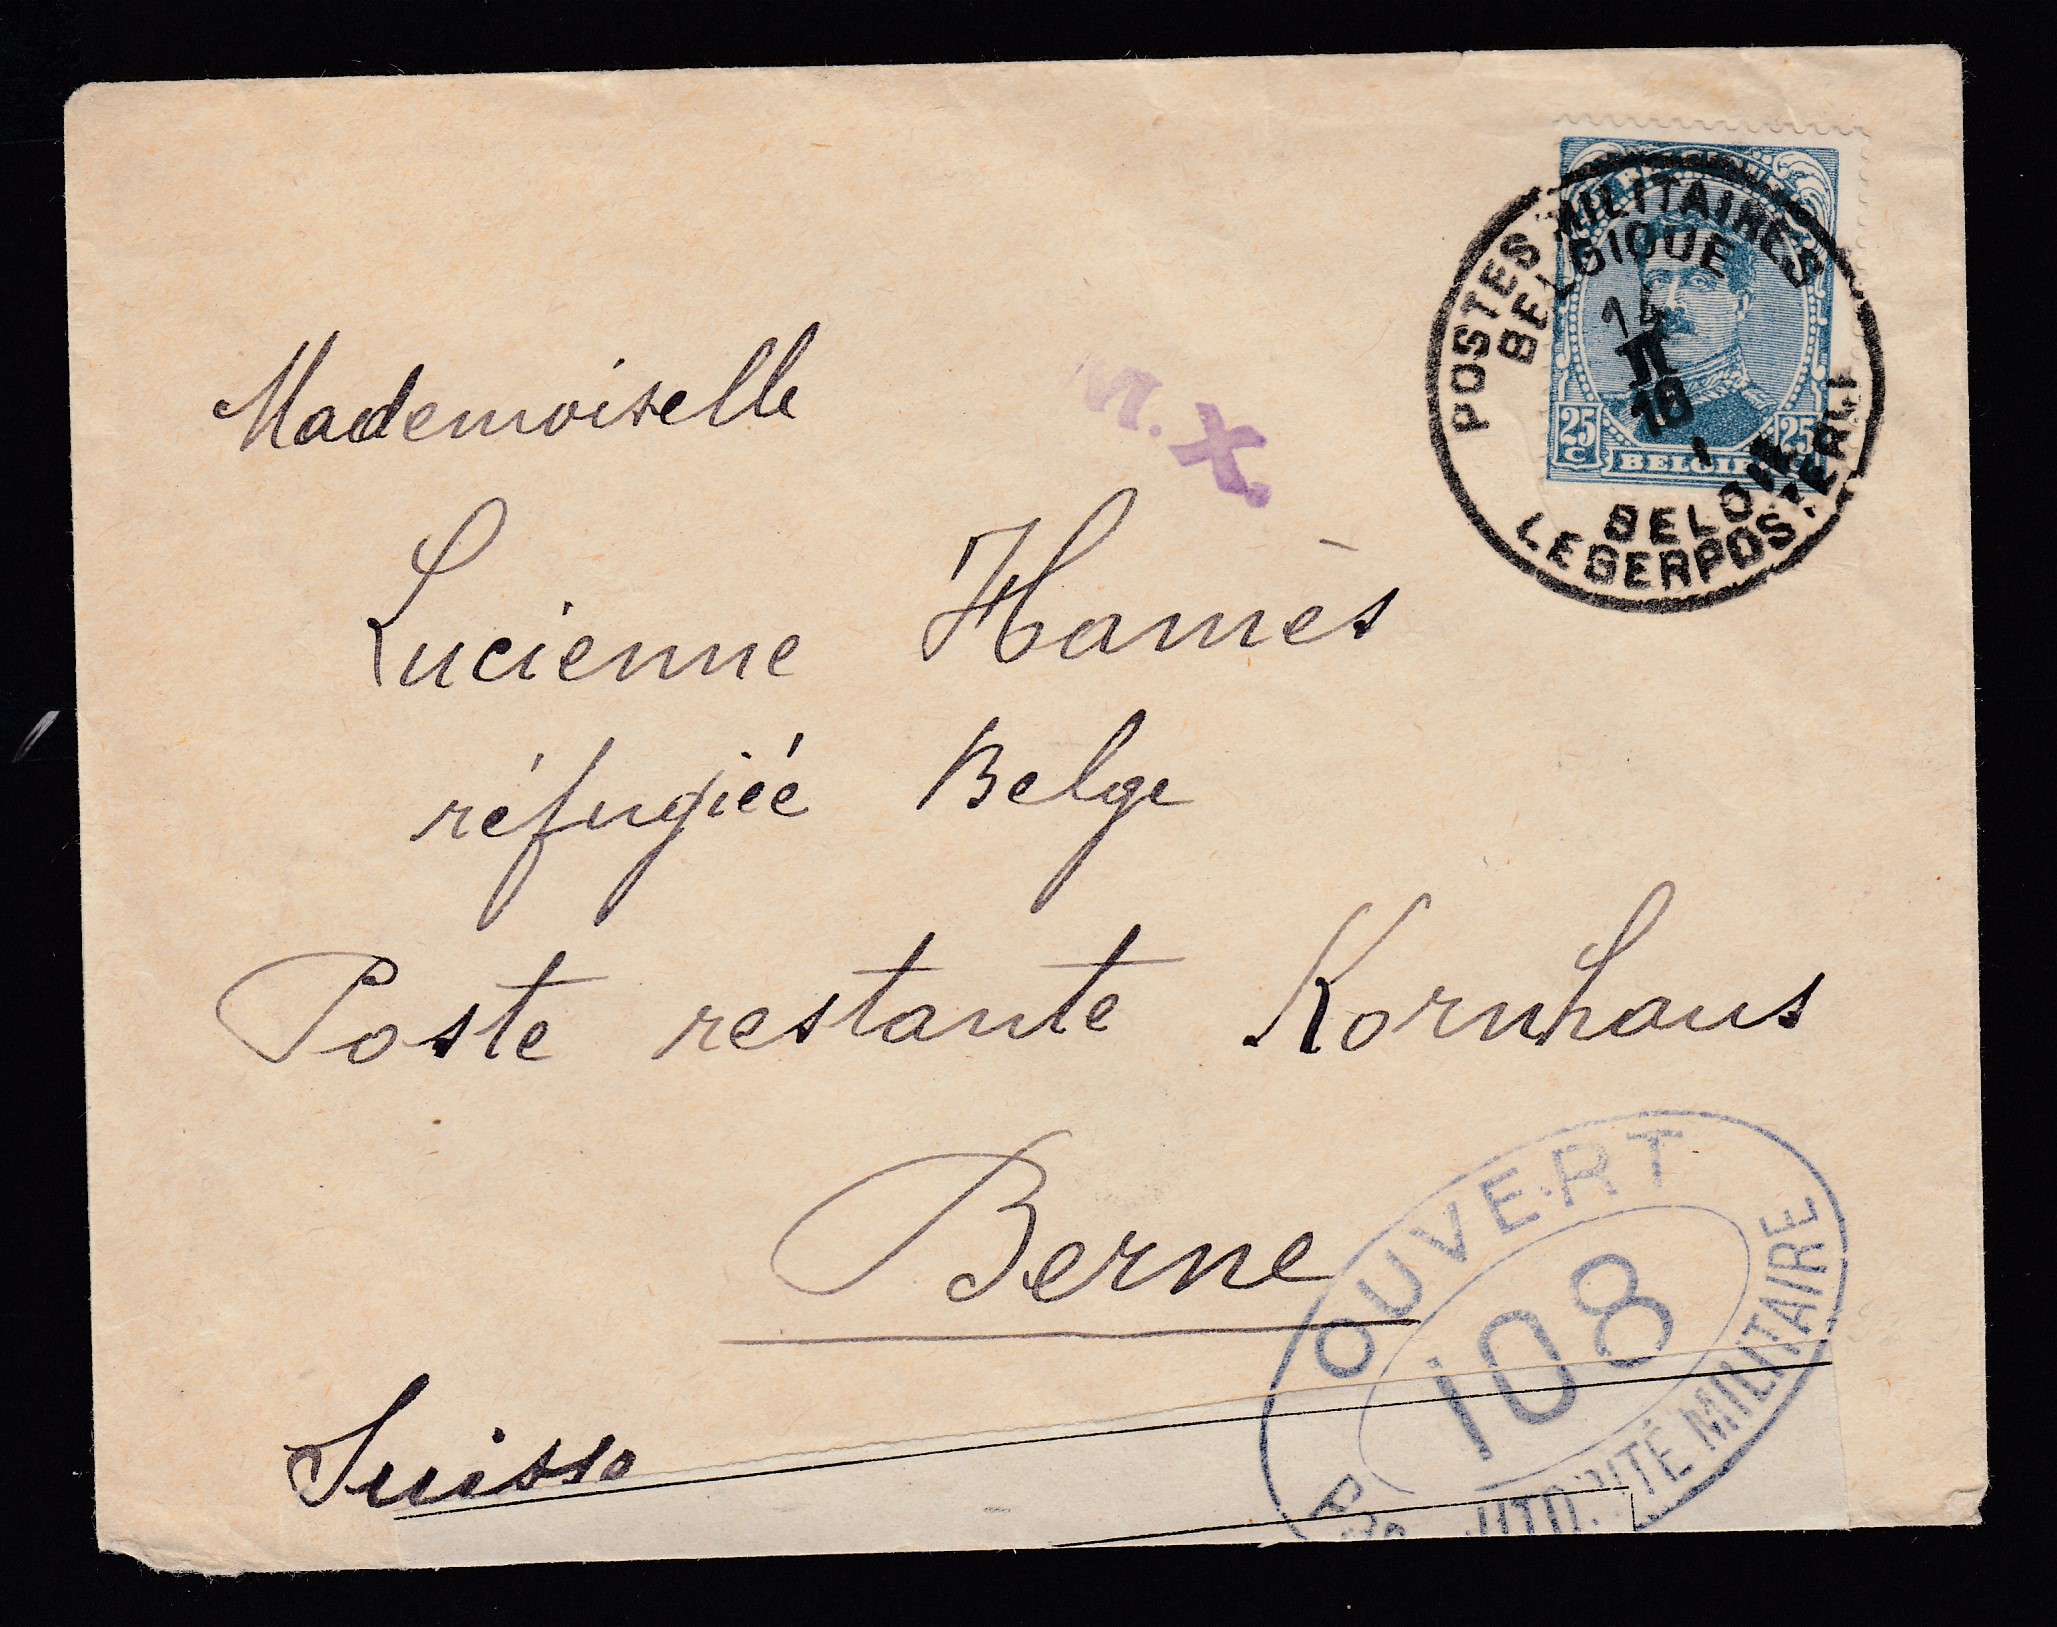 Mademoiselle
Lucienne Hamès
réfugiée Belge
Poste restante Kornhaus
Berne
Suisse
M. X.
POSTES MILITAIRES
BELGIQUE
14
II
18
LEGERPOSTERIJ
25 C
BELGI
25
OUVERT
108
MILITAIRE